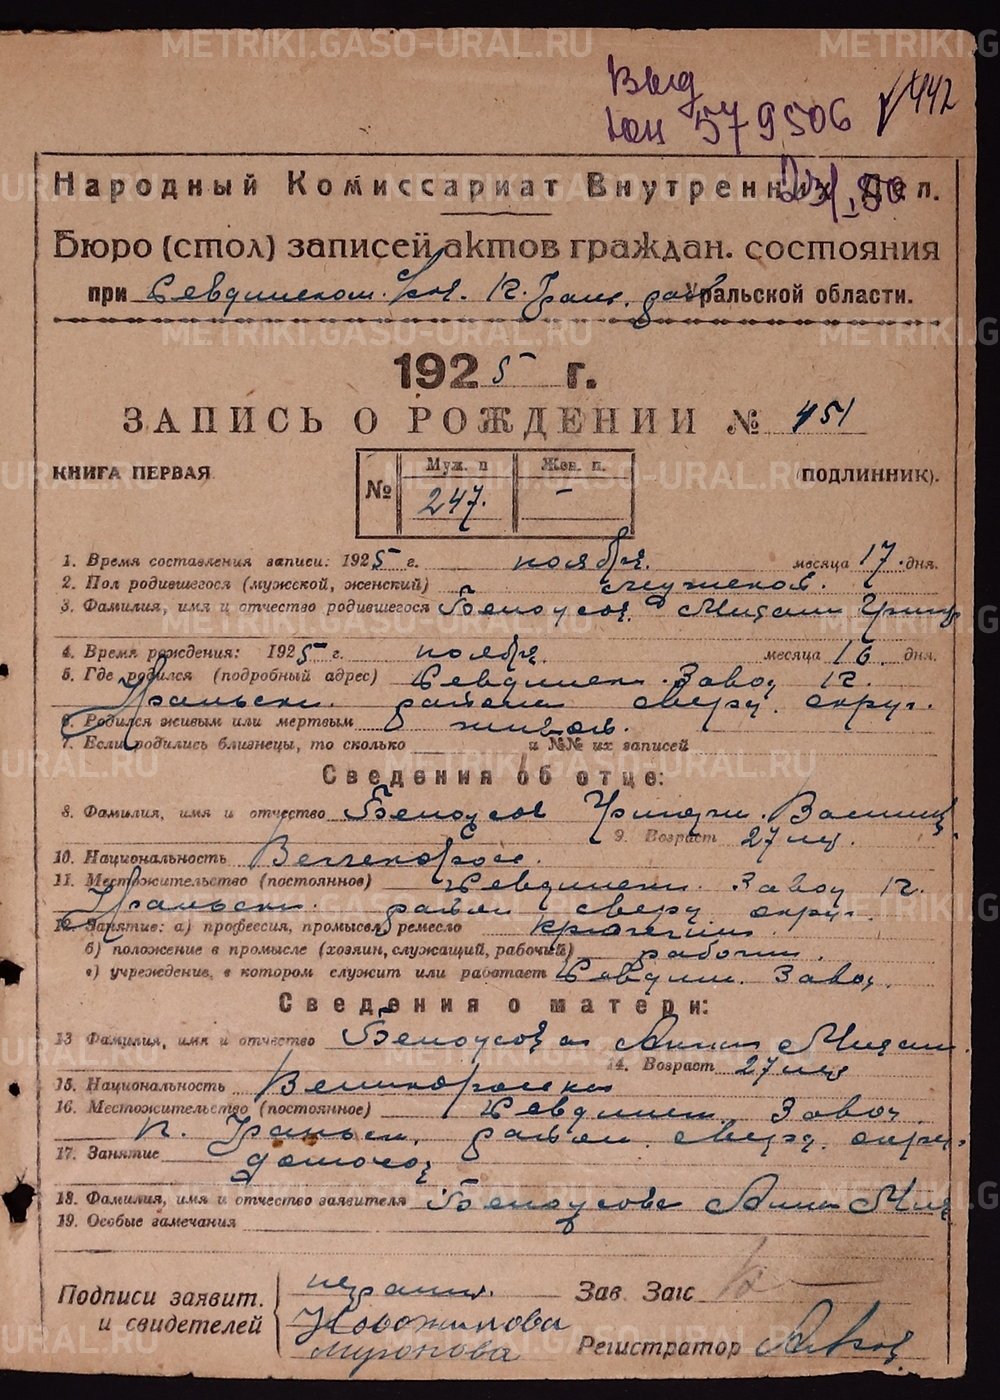 METRIKI.GASO-URAL.RU
Выд
579506
442
Народный Комиссариат Внутренних Дел.
Бюро (стол) записей актов граждан. состояния
при Ревдинском Уральской области.
1925 г.
ЗАПИСЬ О РОЖДЕНИИ № 451
КНИГА ПЕРВАЯ (ПОДЛИННИК).
№ Муж. п 247. Жен. п. –
1. Время составления записи: 1925 г. ноября. месяца 17 дня.
2. Пол родившегося (мужской, женский) мужской.
3. Фамилия, имя и отчество родившегося Белоусов Михаил Григ
4. Время рождения: 1925 г. ноября. месяца 16 дня.
5. Где родился (подробный адрес) Ревдинск. Завод К.
Уральск. района сверд. округ.
6. Родился живым или мертвым живым.
7. Если родились близнецы, то сколько и №№ их записей
Сведения об отце:
8. Фамилия, имя и отчество Белоусов Григори. Васильев
9. Возраст 27 лет.
10. Национальность Великоросс.
11. Местожительство (постоянное) Ревдинск. Завод К.
Уральск. район сверд. округ.
12. Занятие: а) профессия, промысел, ремесло
б) положение в промысле (хозяин, служащий, рабочий) рабочий.
в) учреждение, в котором служит или работает Ревдин. Завод.
Сведения о матери:
13 Фамилия, имя и отчество Белоусова Анна Михаил.
14. Возраст 27 лет
15. Национальность Великоросска
16. Местожительство (постоянное) Ревдинск. Завод
К. Уральск. район. сверд. округ.
17. Занятие домохоз
18. Фамилия, имя и отчество заявителя Белоусова Анна Мих
19. Особые замечания
Подписи заявит. и свидетелей
неграмот.
Новожилова
Зав. Загс
Регистратор